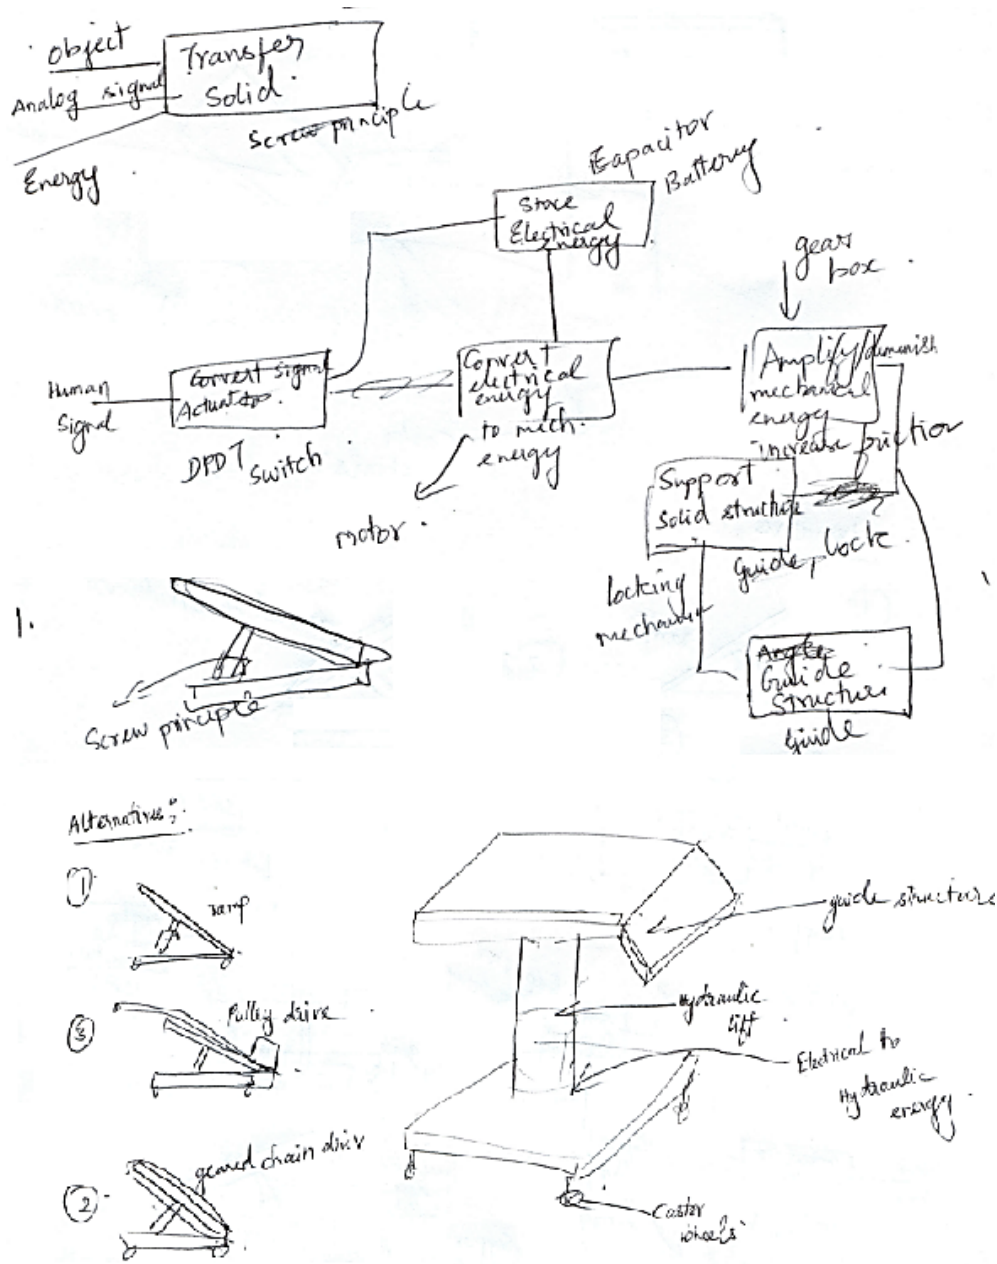 Object
Analog signal
Energy
Transfer
Solid
Screw principle
Eapacitor
Battery
Store
Electrical
Energy
gear
box
Human
Signal
Convert signal
Actuator
DPDT
Switch
Convert
electrical
energy
to mech.
energy
motor
Amplify/diminish
mechanical
energy
increase friction
Support
Solid structure
Guide, lock
locking
mechanism
Guide
Structure
Guide
1.
Screw principle
Alternatives:
1
ramp
3
Pulley drive
2
geared chain driv
guide structure
Hydraulic
lift
Electrical to
Hydraulic
energy.
Castor
wheels